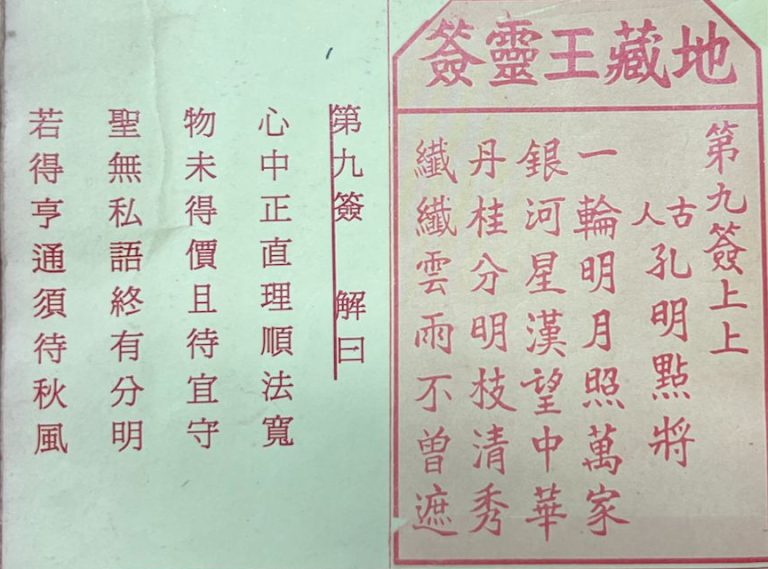 地藏王靈簽
第九簽上上
古人孔明點將
一輪明月照萬家
銀河星漢望中華
丹桂分明枝清秀
纖纖雲雨不曾遮
第九簽 解曰
心中正直理順法寬
物未得價且待宜守
聖無私語終有分明
若得亨通須待秋風